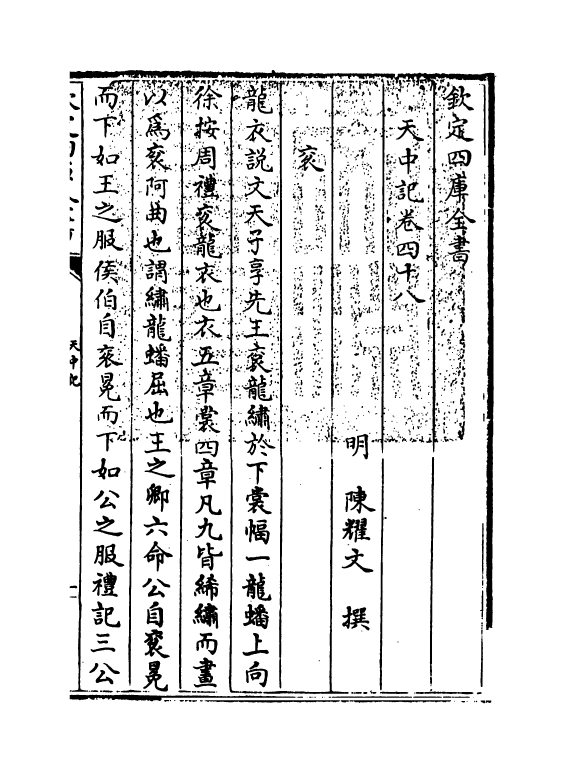 欽定四庫全書
天中記卷四十八
明 陳耀文 撰
衮
龍衣說文天子享先王衮龍繡於下裳幅一龍蟠上向
徐按周禮衮龍衣也衣五章裳四章凡九皆絺繡而畫
以為衮阿曲也謂繡龍蟠屈也王之卿六命公自衮冕
而下如王之服侯伯自衮冕而下如公之服禮記三公
天中記